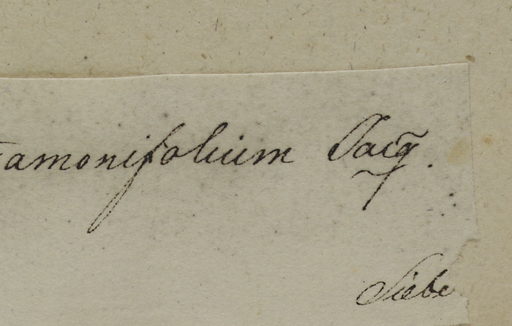 amonifolium Jacq.
Siebe